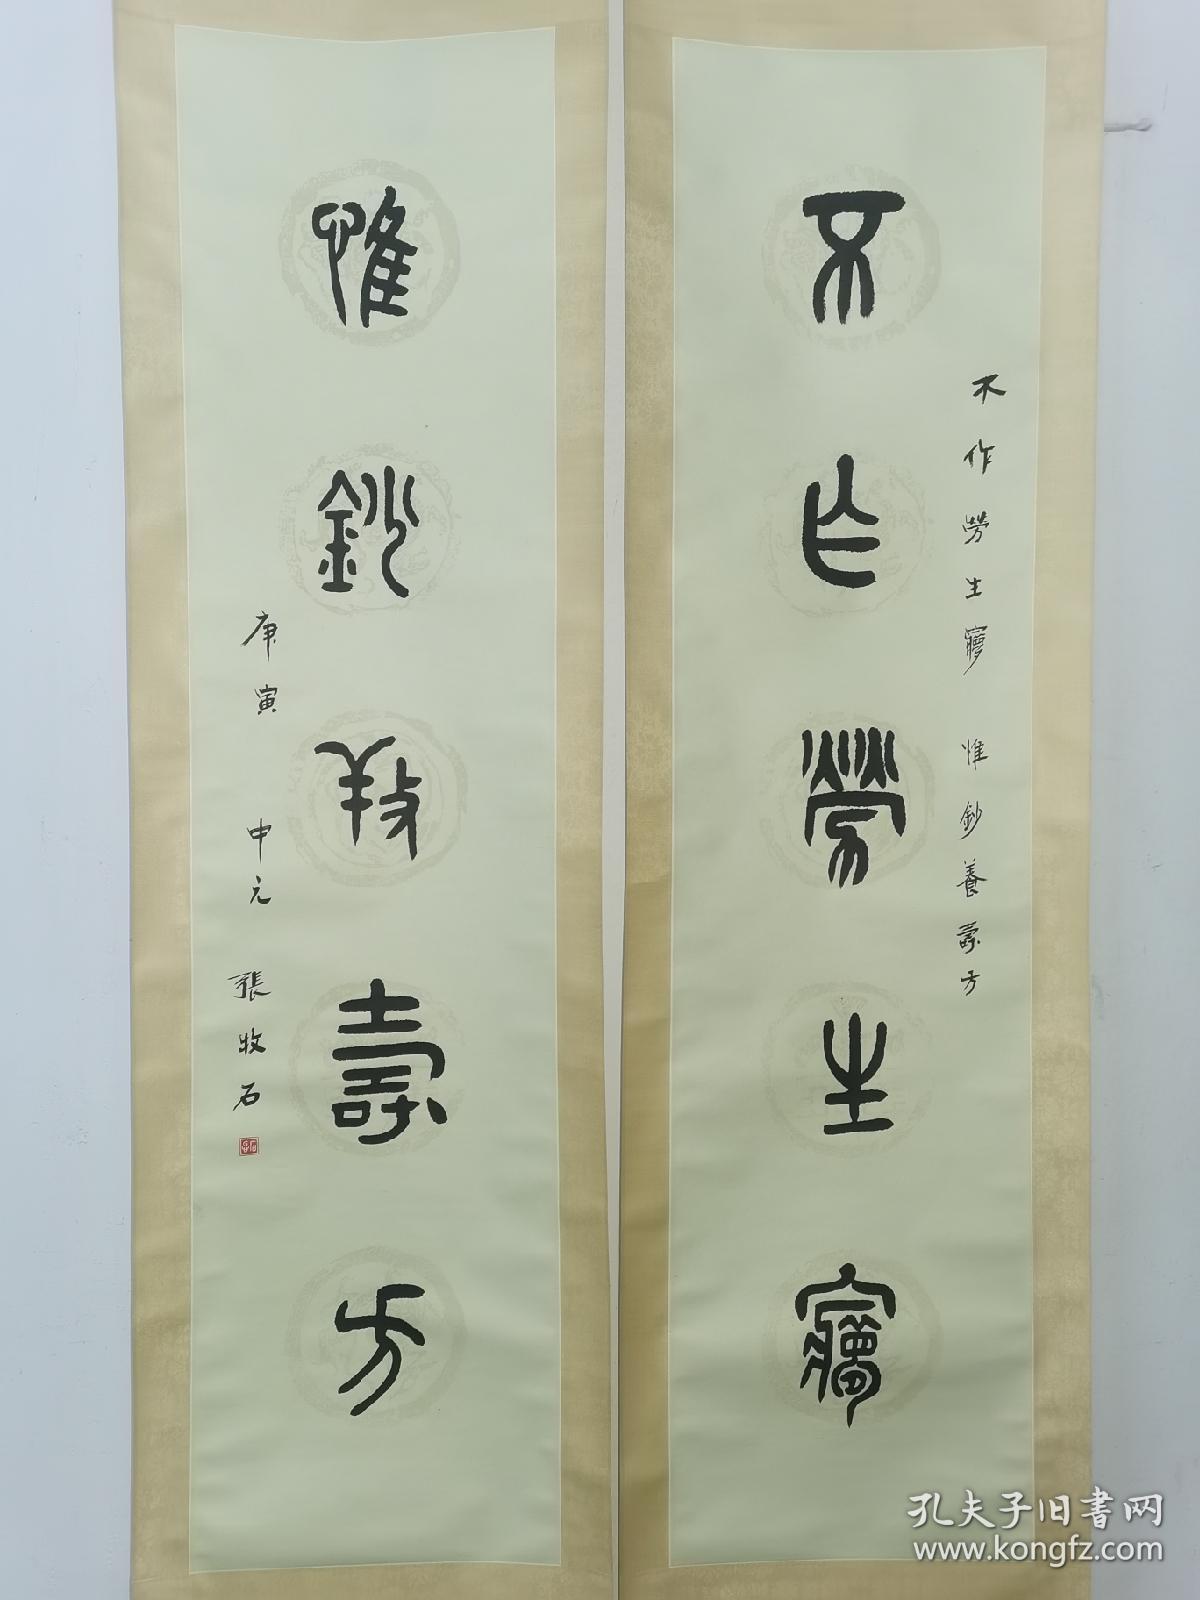 不作勞生寱
不作勞生寱 惟鈔養壽方
惟鈔养壽方
庚寅 中元 張牧石
孔夫子旧書网
www.kongfz.com